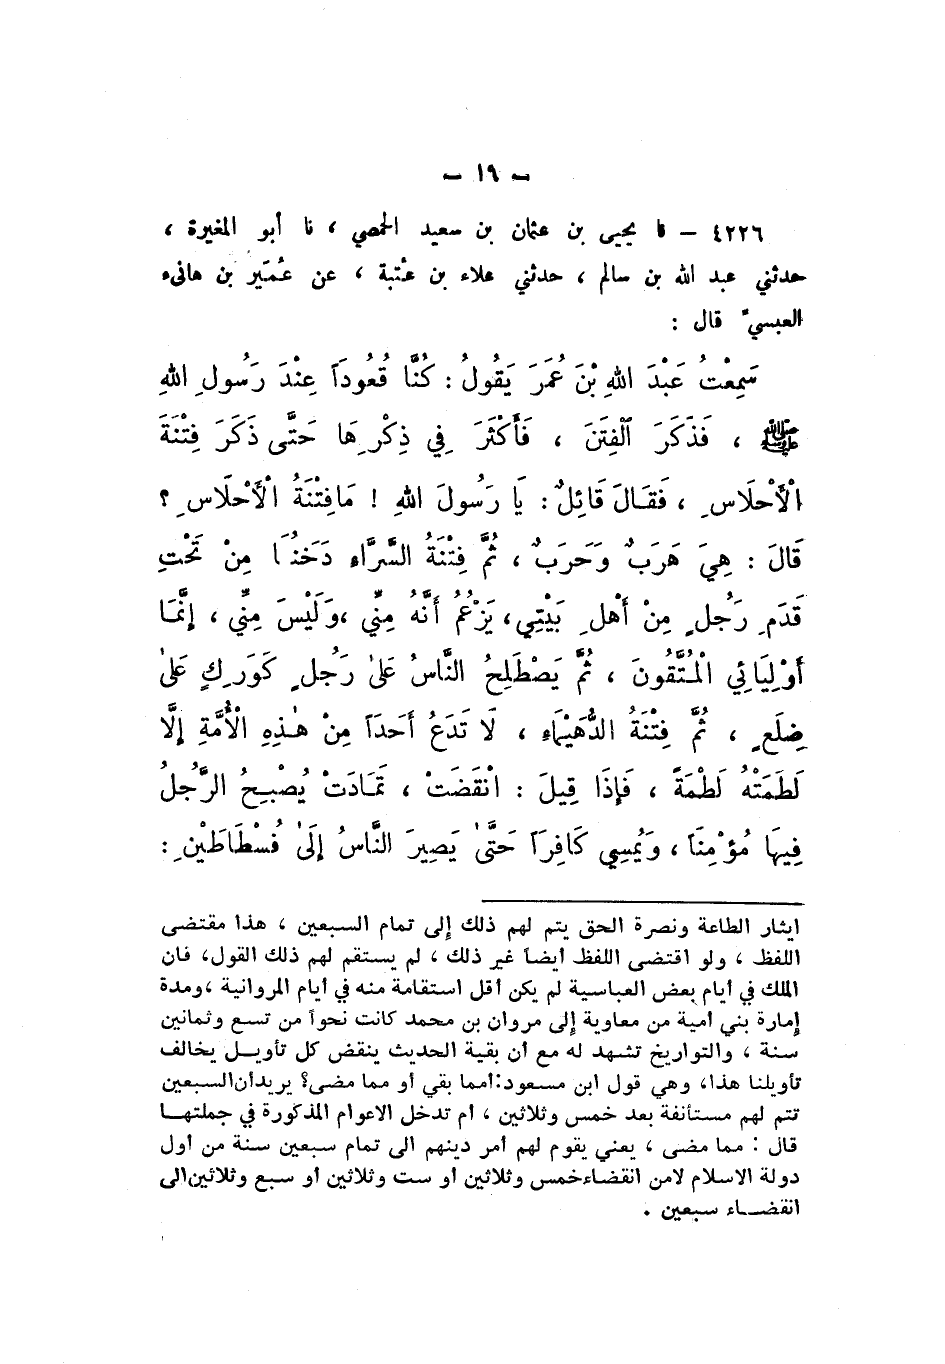 – ١٩ –
٤٢٢٦ – نا يحيى بن عثمان بن سعيد الحمصي ، نا أبو المغيرة ،
حدثني عبد الله بن سالم ، حدثني علاء بن عُتبة ، عن عُمَير بن هانىء
العبسيّ قال :
سَمِعْتُ عَبْدَ اللهِ بْنَ عُمَرَ يَقُولُ : كُنَّا قُعُوداً عِنْدَ رَسُولِ اللهِ
ﷺ ، فَذَكَرَ الْفِتَنَ ، فَأَكْثَرَ فِي ذِكْرِهَا حَتَّى ذَكَرَ فِتْنَةَ
الْأَحْلَاسِ ، فَقَالَ قَائِلٌ : يَا رَسُولَ اللهِ ! مَا فِتْنَةُ الْأَحْلَاسِ ؟
قَالَ : هِيَ هَرَبٌ وَحَرَبٌ ، ثُمَّ فِتْنَةُ السَّرَّاءِ دَخَنُهَا مِنْ تَحْتِ
قَدَمِ رَجُلٍ مِنْ أَهْلِ بَيْتِي، يَزْعُمُ أَنَّهُ مِنِّي ،وَلَيْسَ مِنِّي ، إِنَّمَا
أَوْلِيَائِي الْمُتَّقُونَ ، ثُمَّ يَصْطَلِحُ النَّاسُ عَلىٰ رَجُلٍ كَوَرِكٍ عَلىٰ
ضِلَعٍ ، ثُمَّ فِتْنَةُ الدُّهَيْمَاءِ ، لَا تَدَعُ أَحَداً مِنْ هٰذِهِ الْأُمَّةِ إِلَّا
لَطَمَتْهُ لَطْمَةً ، فَإِذَا قِيلَ : انْقَضَتْ ، تَمَادَتْ يُصْبِحُ الرَّجُلُ
فِيهَا مُؤْمِناً ، وَيُمْسِي كَافِراً حَتَّىٰ يَصِيرَ النَّاسُ إِلَىٰ فُسْطَاطَيْنِ :
ايثار الطاعة ونصرة الحق يتم لهم ذلك إلى تمام السبعين ، هذا مقتضى
اللفظ ، ولو اقتضى اللفظ أيضاً غير ذلك ، لم يستقم لهم ذلك القول، فان
الملك في أيام بعض العباسية لم يكن أقل استقامة منه في أيام المروانية ،ومدة
إمارة بني أمية من معاوية إلى مروان بن محمد كانت نحواً من تسع وثمانين
سنة ، والتواريخ تشهد له مع أن بقية الحديث ينقض كل تأويل يخالف
تأويلنا هذا، وهي قول ابن مسعود:أمما بقي أو مما مضى؟ يريدأن السبعين
تتم لهم مستأنفة بعد خمس وثلاثين ، أم تدخل الاعوام المذكورة في جملتها
قال : مما مضى ، يعني يقوم لهم أمر دينهم الى تمام سبعين سنة من أول
دولة الاسلام لامن انقضاءخمس وثلاثين أو ست وثلاثين أو سبع وثلاثين الى
انقضاء سبعين .